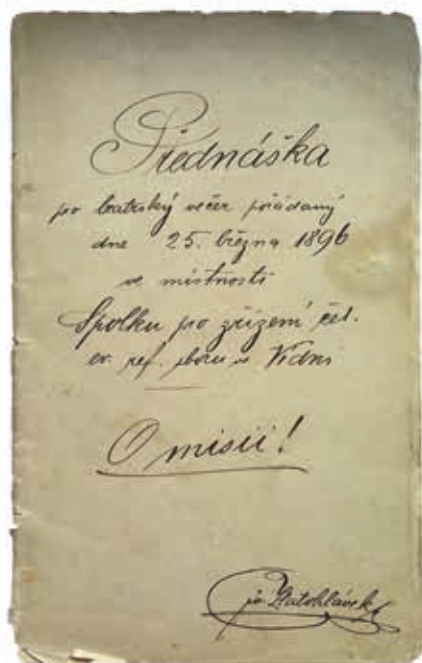 Přednáška
pro bratrský večer pořádaný
dne 25. března 1896
ve místnosti
Spolku pro zřízení čes.
ev. ref. sboru ve Vídni
O misii!